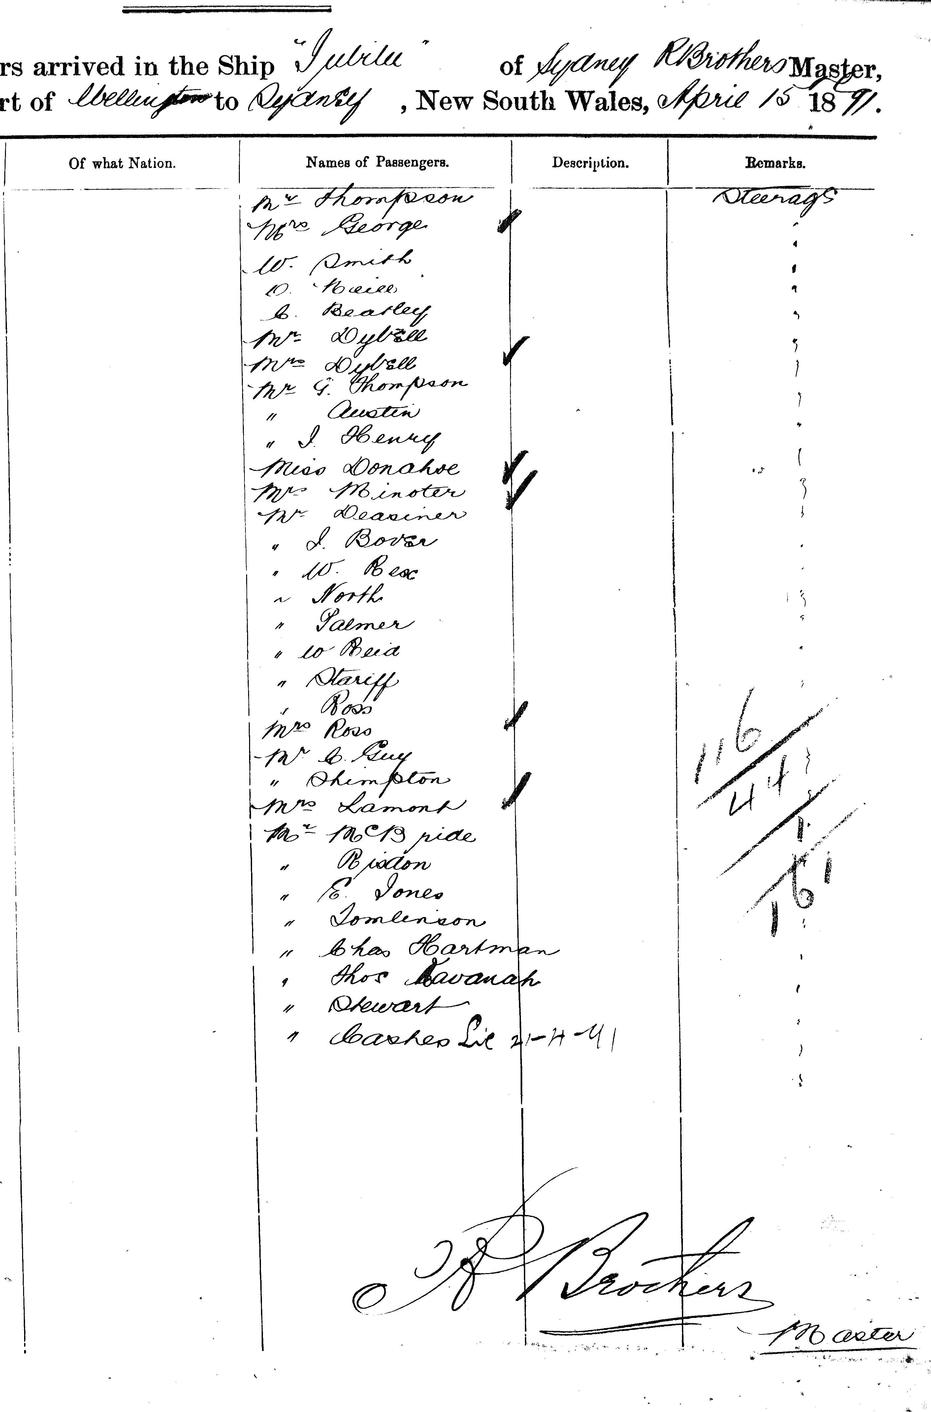 rs arrived in the Ship "Jubilee" of Sydney R Brothers Master,
rt of Wellington to Sydney, New South Wales, April 15 1891.
Of what Nation. Names of Passengers. Description. Remarks.
Mr Thompson Steerage
Mrs George
W. Smith
D.
C. Beatley
Mr Dybell
Mrs Dybell
Mr G. Thompson
" Austin
" J. Henry
Miss Donahoe
Mrs Minoter
Mr Deasiner
" J. Bover
" W. Rex
" North
" Palmer
" W Reid
" Stariff
" Ross
Mrs Ross
Mr C. Guy
" Shimpton
Mrs Lamont
Mr McBride
" Risdon
" E. Jones
" Tomlinson
" Chas Hartman
" Thos Kavanah
" Stewart
" Cashes Lic 21-4-91
116
44
1
161
R Brothers
Master